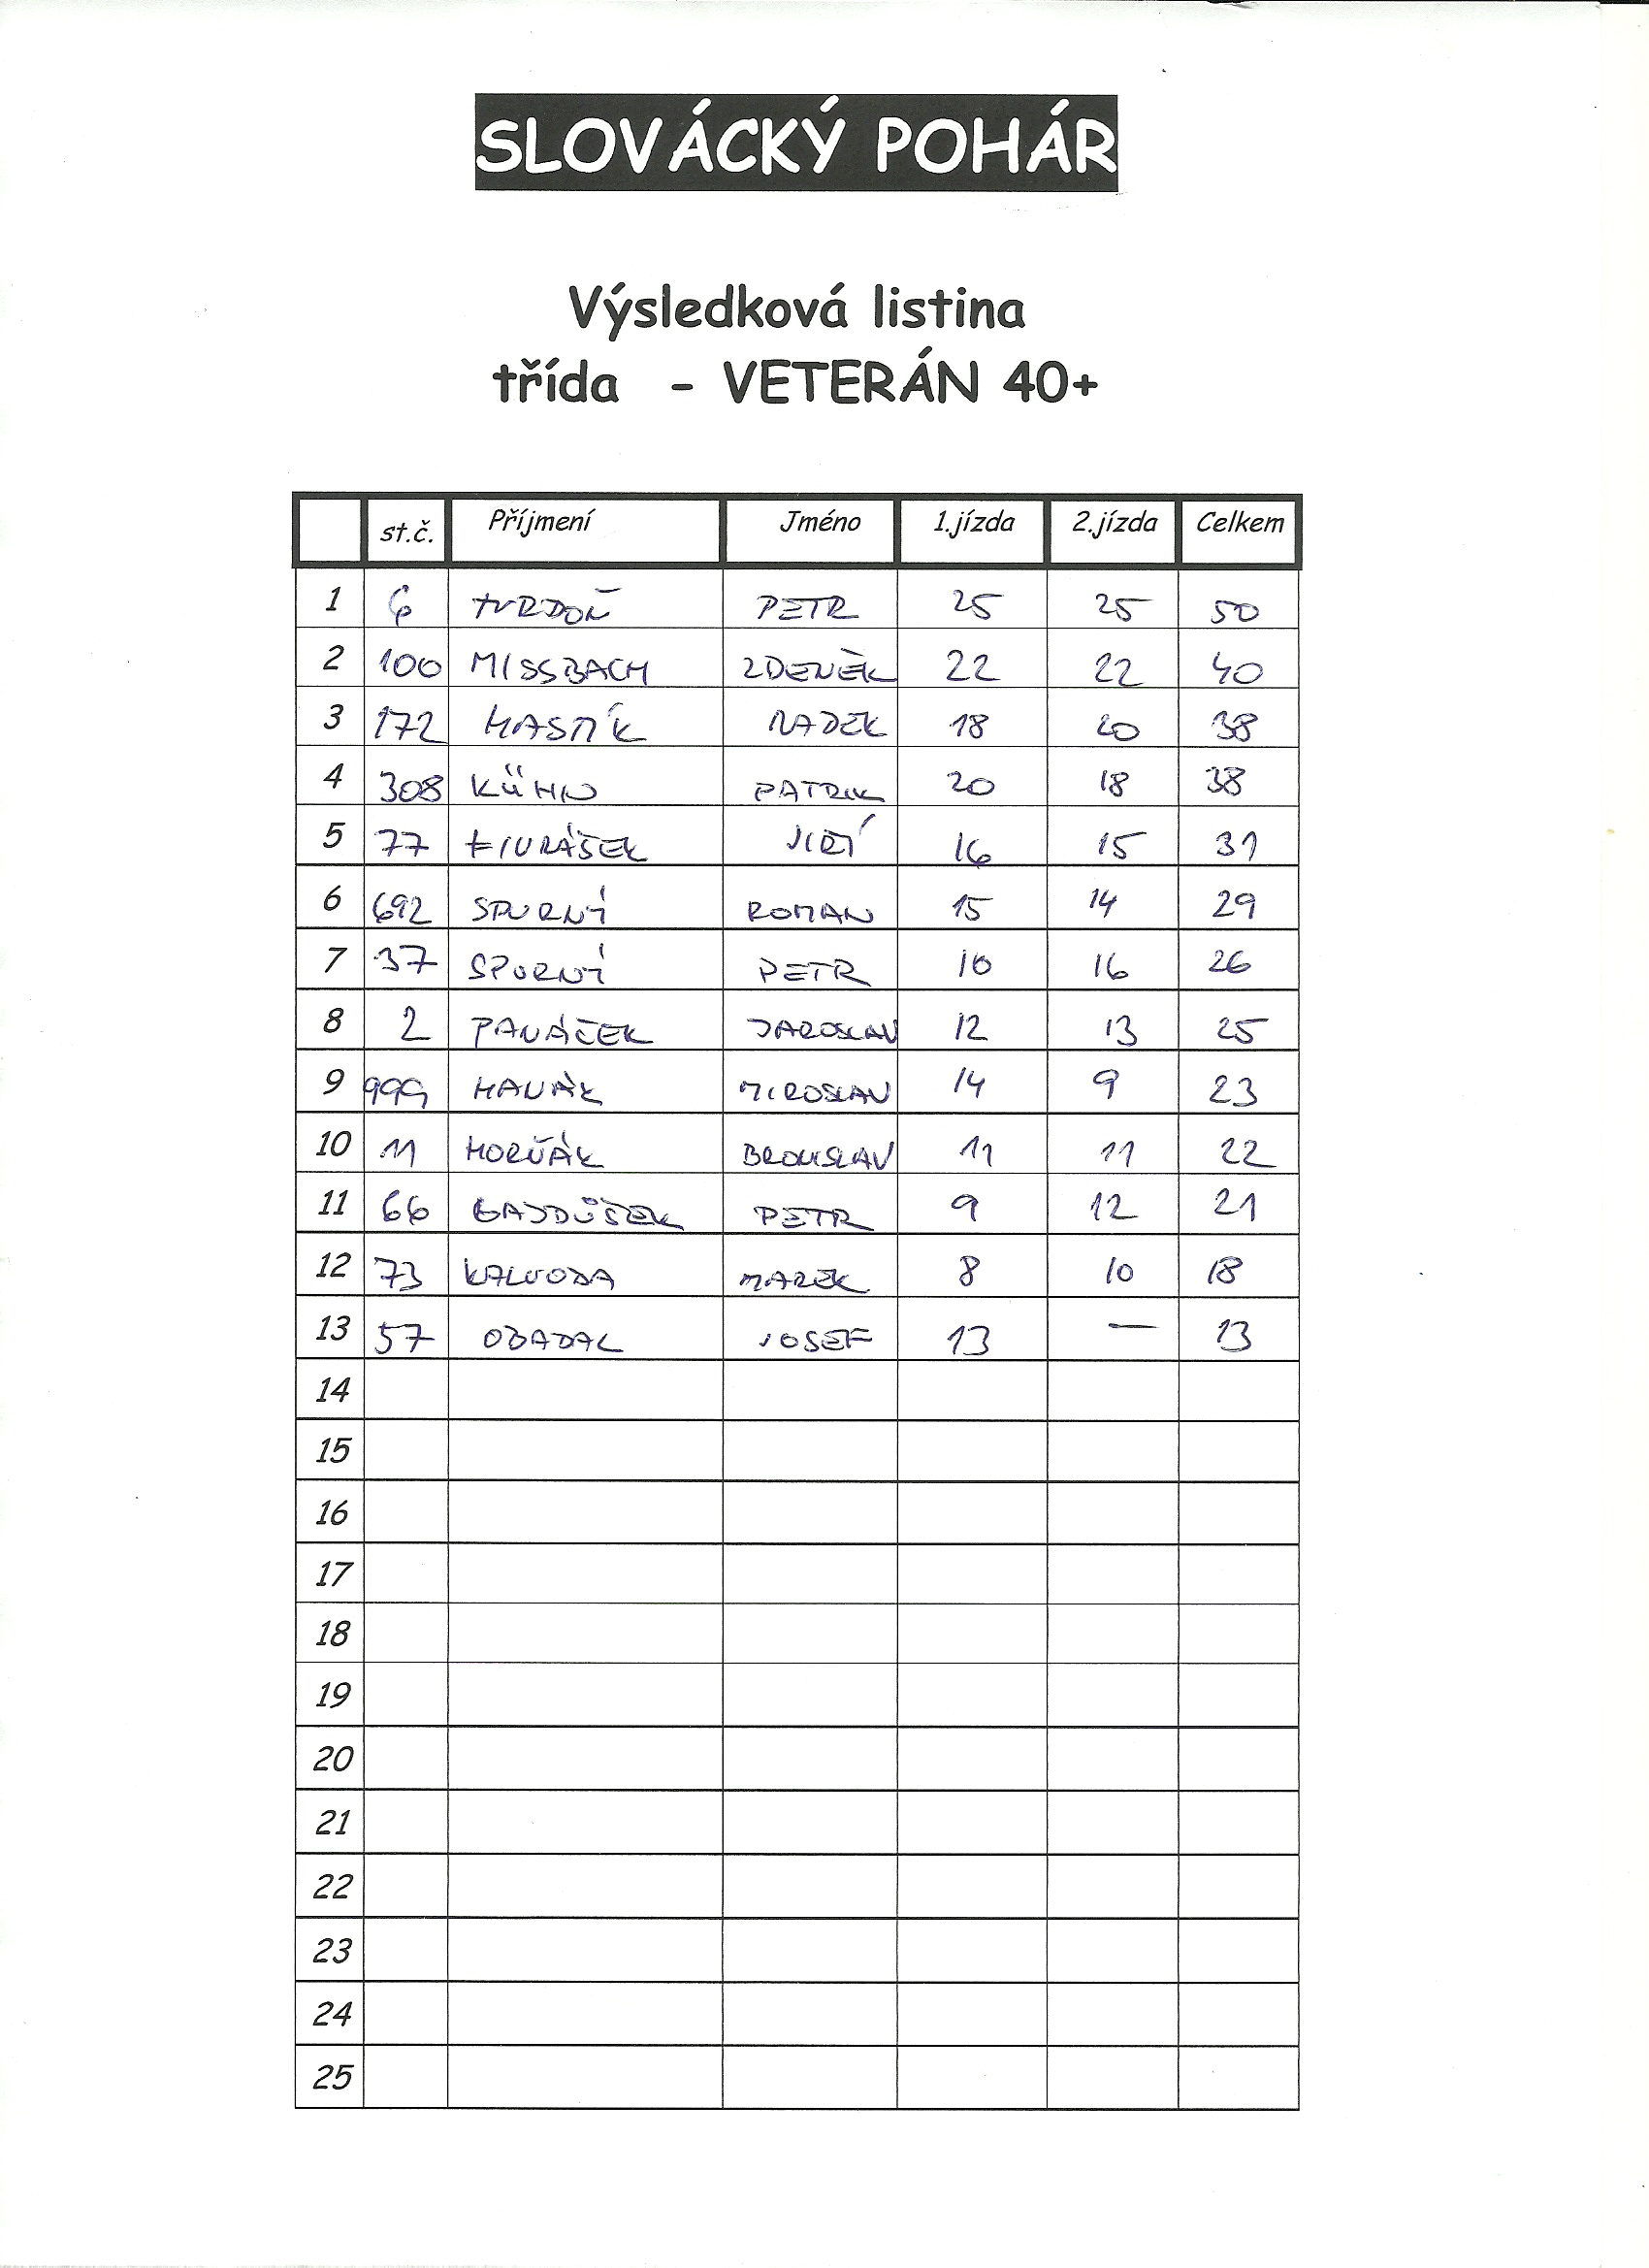 SLOVÁCKÝ POHÁR
Výsledková listina
třída - VETERÁN 40+
st.č. Příjmení Jméno 1.jízda 2.jízda Celkem
1 6 TVRDOŇ PETR 25 25 50
2 100 MISSBACH ZDENĚK 22 22 40
3 172 MASTÍK RADEK 18 20 38
4 308 KÜHN PATRIK 20 18 38
5 77 JIŘÍ 16 15 31
6 692 SPURNÝ ROMAN 15 14 29
7 37 SPURNÝ PETR 10 16 26
8 2 PANÁČEK JAROSLAV 12 13 25
9 999 HANÁK MIROSLAV 14 9 23
10 11 HORŇÁK BRONISLAV 11 11 22
11 66 GAJDŮŠEK PETR 9 12 21
12 73 KALVODA MAREK 8 10 18
13 57 OBADAL JOSEF 13 — 13
14
15
16
17
18
19
20
21
22
23
24
25